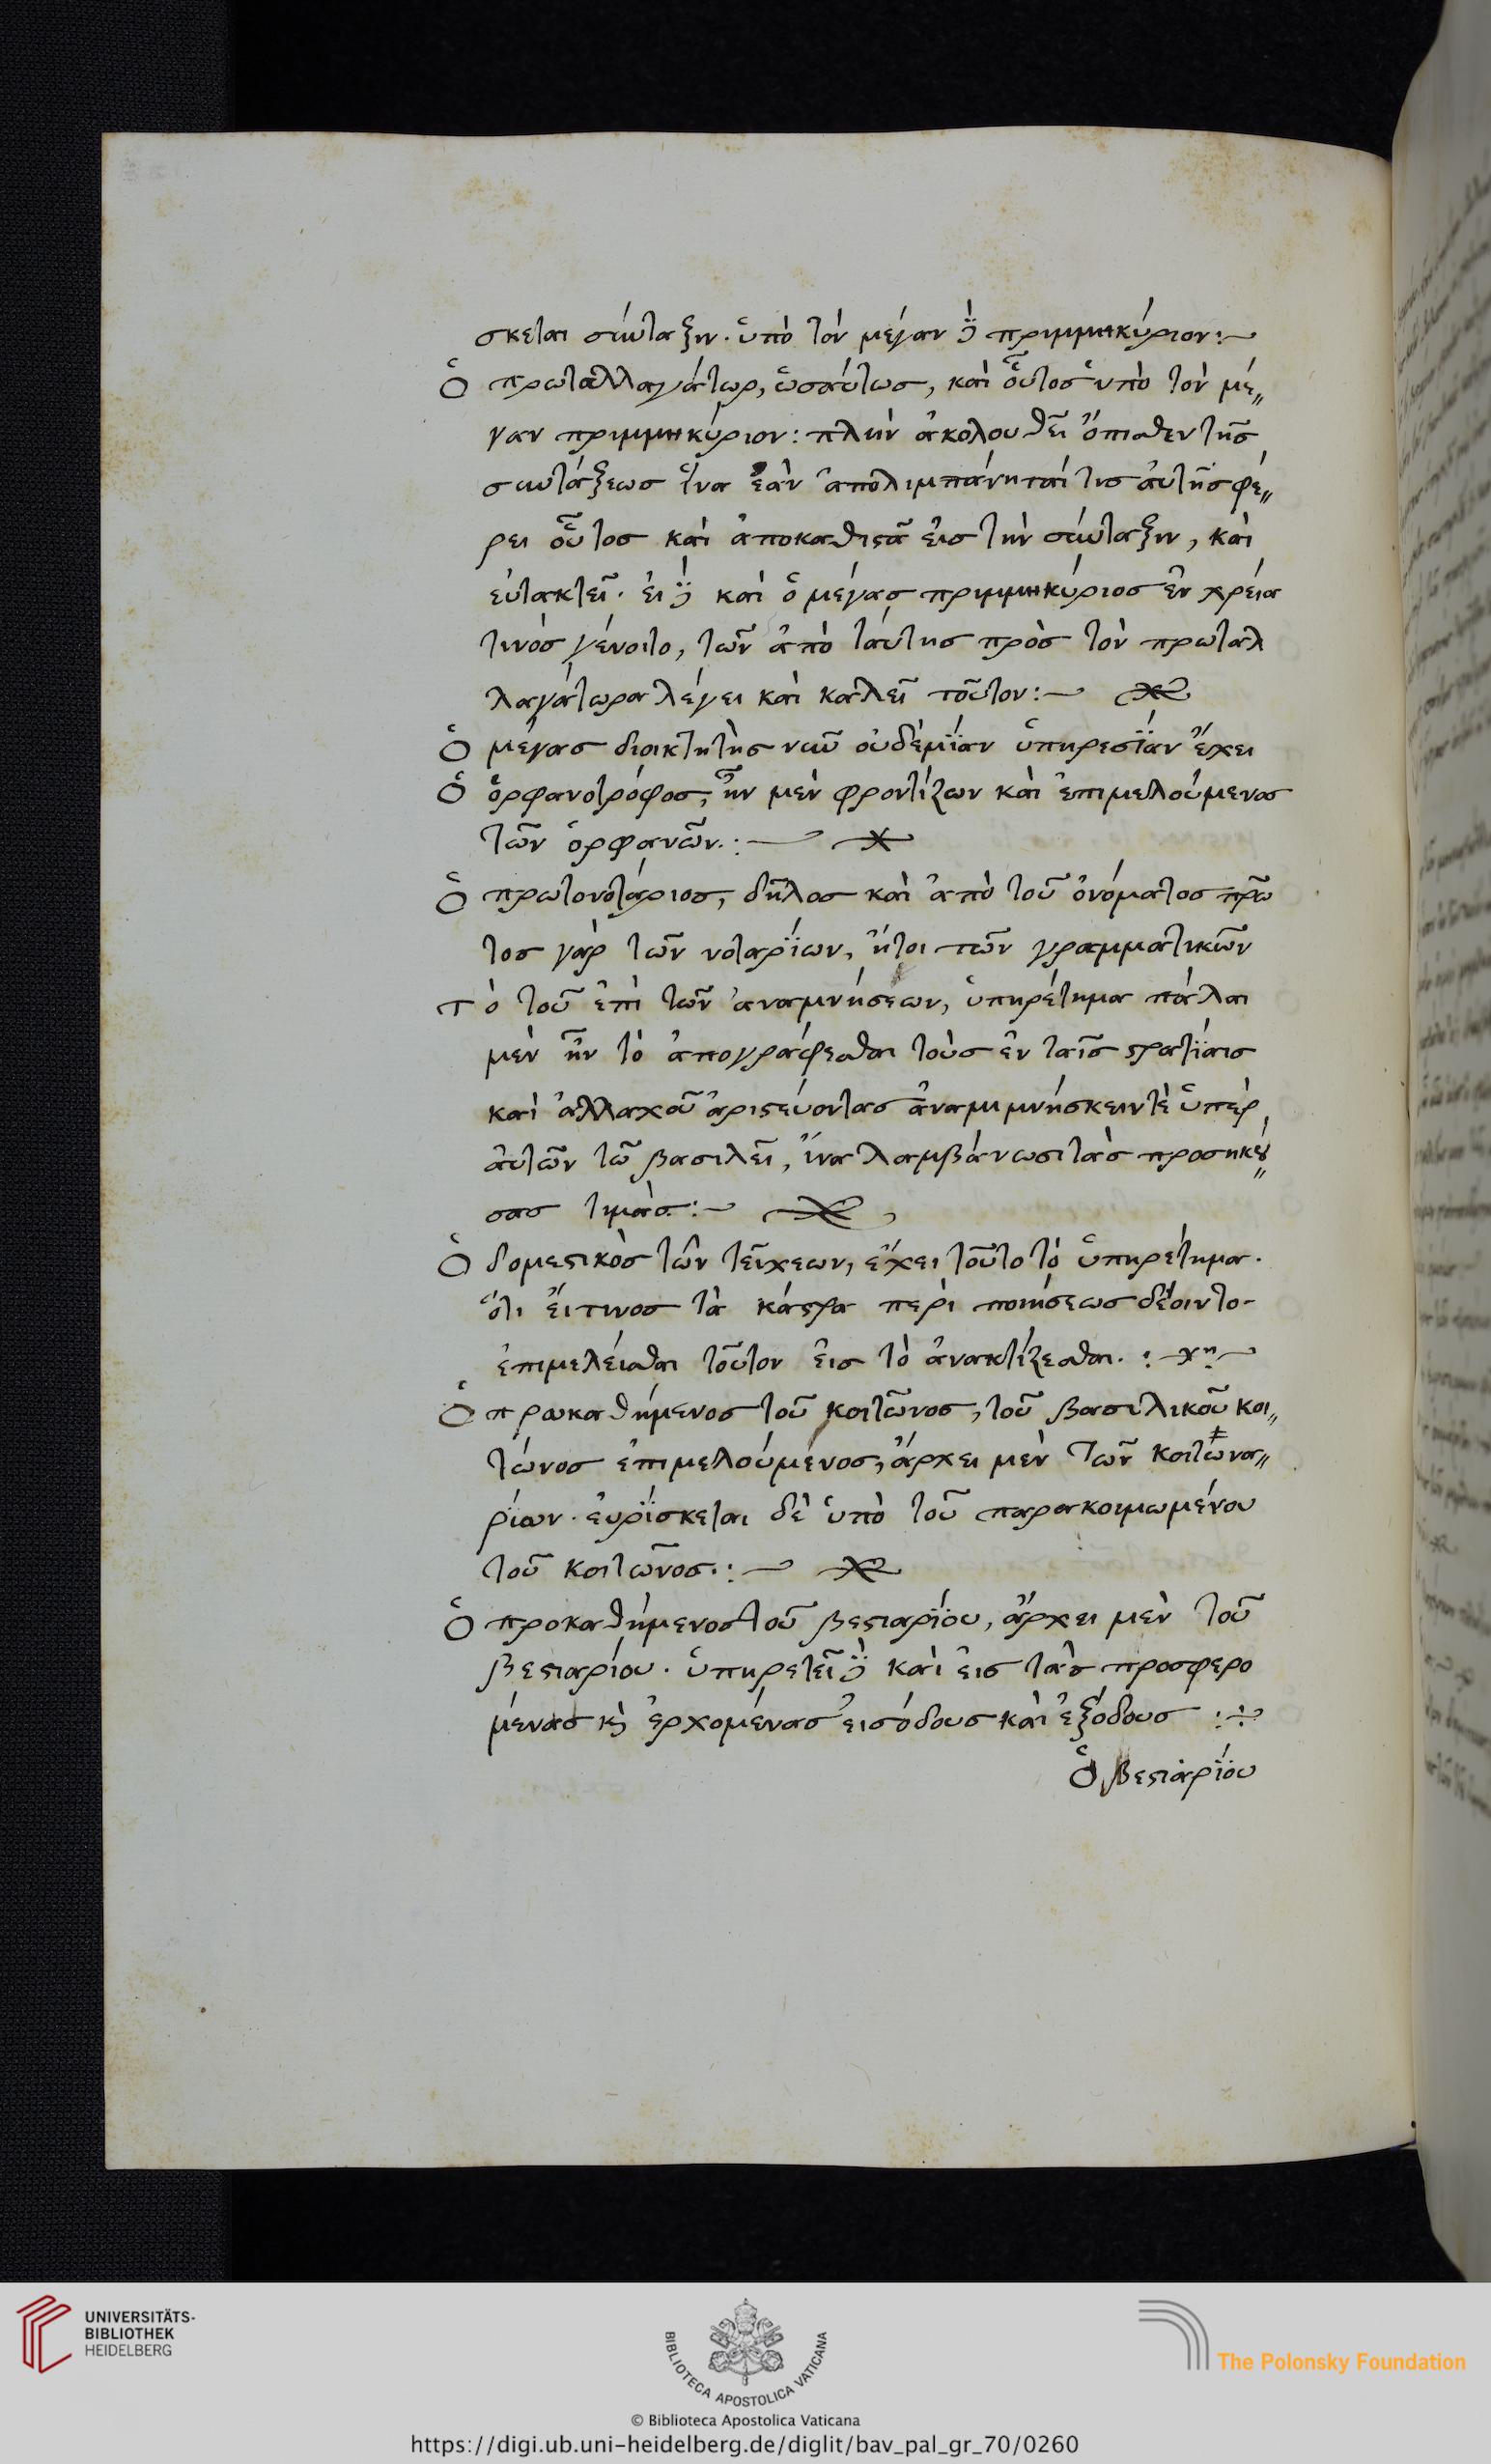 σκεται σύνταξιν. ὑπὸ τὸν μέγαν δὲ πριμμηκύριον:~
Ὁ πρωταλλαγάτωρ, ὡσαύτως, καὶ οὗτος ὑπὸ τὸν μέ〃
γαν πριμμηκύριον: πλὴν ἀκολουθεῖ ὄπισθεν τῆς
συντάξεως ἵνα ἐὰν ἀπολιμπάνηται τις αὐτῆς φέ〃
ρει οὗτος καὶ ἀποκαθιστᾶ εἰς τὴν σύνταξιν, καὶ
εὐτακτεῖ. εἰ δὲ καὶ ὁ μέγας πριμμηκύριος ἐν χρεία
τινὸς γένοιτο, τῶν ἀπὸ ταύτης πρὸς τὸν πρωταλ
λαγάτορα λέγει καὶ καλεῖ τοῦτον:~
Ὁ μέγας διοικτητὴς νῦν οὐδὲμΐαν ὑπηρεσΐαν ἔχει
Ὁ ὀρφανοτρόφος, ἦν μὲν φροντίζων καὶ ἐπιμελούμενος
τῶν ὀρφανῶν.:~
Ὁ πρωτονοτάριος, δῆλος καὶ ἀπὸ τοῦ ὀνόματος πρῶ
τος γὰρ τῶν νοταρΐων, ἤτοι τῶν γραμματικῶν
Τὸ τοῦ ἐπὶ τῶν ἀναμνήσεων, ὑπηρέτημα πάλαι
μὲν ἦν τὸ ἀπογράφεσθαι τοὺς ἐν ταῖς στρατΐαις
καὶ ἀλλαχοῦ ἀριστεύοντας ἀναμιμνήσκειν τὲ ὑπὲρ
αὐτῶν τῶ βασιλεῖ, ἵνα λαμβάνωσι τὰς προσηκού〃
σας τιμάς:~
Ὁ δομεστικὸς τῶν τειχεων, ἔχει τοῦτο τὸ ὑπηρέτημα.
ὅτι εἴ τινος τὰ κάστρα περὶ ποιήσεως δέοιντο.
ἐπιμελεῖσθαι τοῦτον εἰς τὸ ἀνακτίζεσθαι.:~
Ὁ πρωκαθήμενος τοῦ κοιτῶνος, τοῦ βασιλικοῦ κοι〃
τῶνος ἐπιμελούμενος, ἄρχει μὲν τῶν κοιτωνα〃
ρίων. εὑρΐσκεται δὲ ὑπὸ τοῦ παρακοιμωμένου
τοῦ κοιτῶνος.:~
Ὁ προκαθήμενος τοῦ βεστιαρΐου, ἄρχει μὲν τοῦ
βεστιαρίου. ὑπηρετεῖ δὲ καὶ εἰς τὰς προσφερο
μένας κὶ ἐρχομένας εἰσόδους καὶ ἐξόδους :~
Ὁ βεστιαρΐου
UNIVERSITÄTS-
BIBLIOTHEK
HEIDELBERG
BIBLIOTECA APOSTOLICA VATICANA
The Polonsky Foundation
© Biblioteca Apostolica Vaticana
https://digi.ub.uni-heidelberg.de/diglit/bav_pal_gr_70/0260